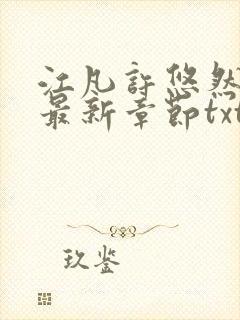 江凡許悠然
最新章節txt
玖鉴